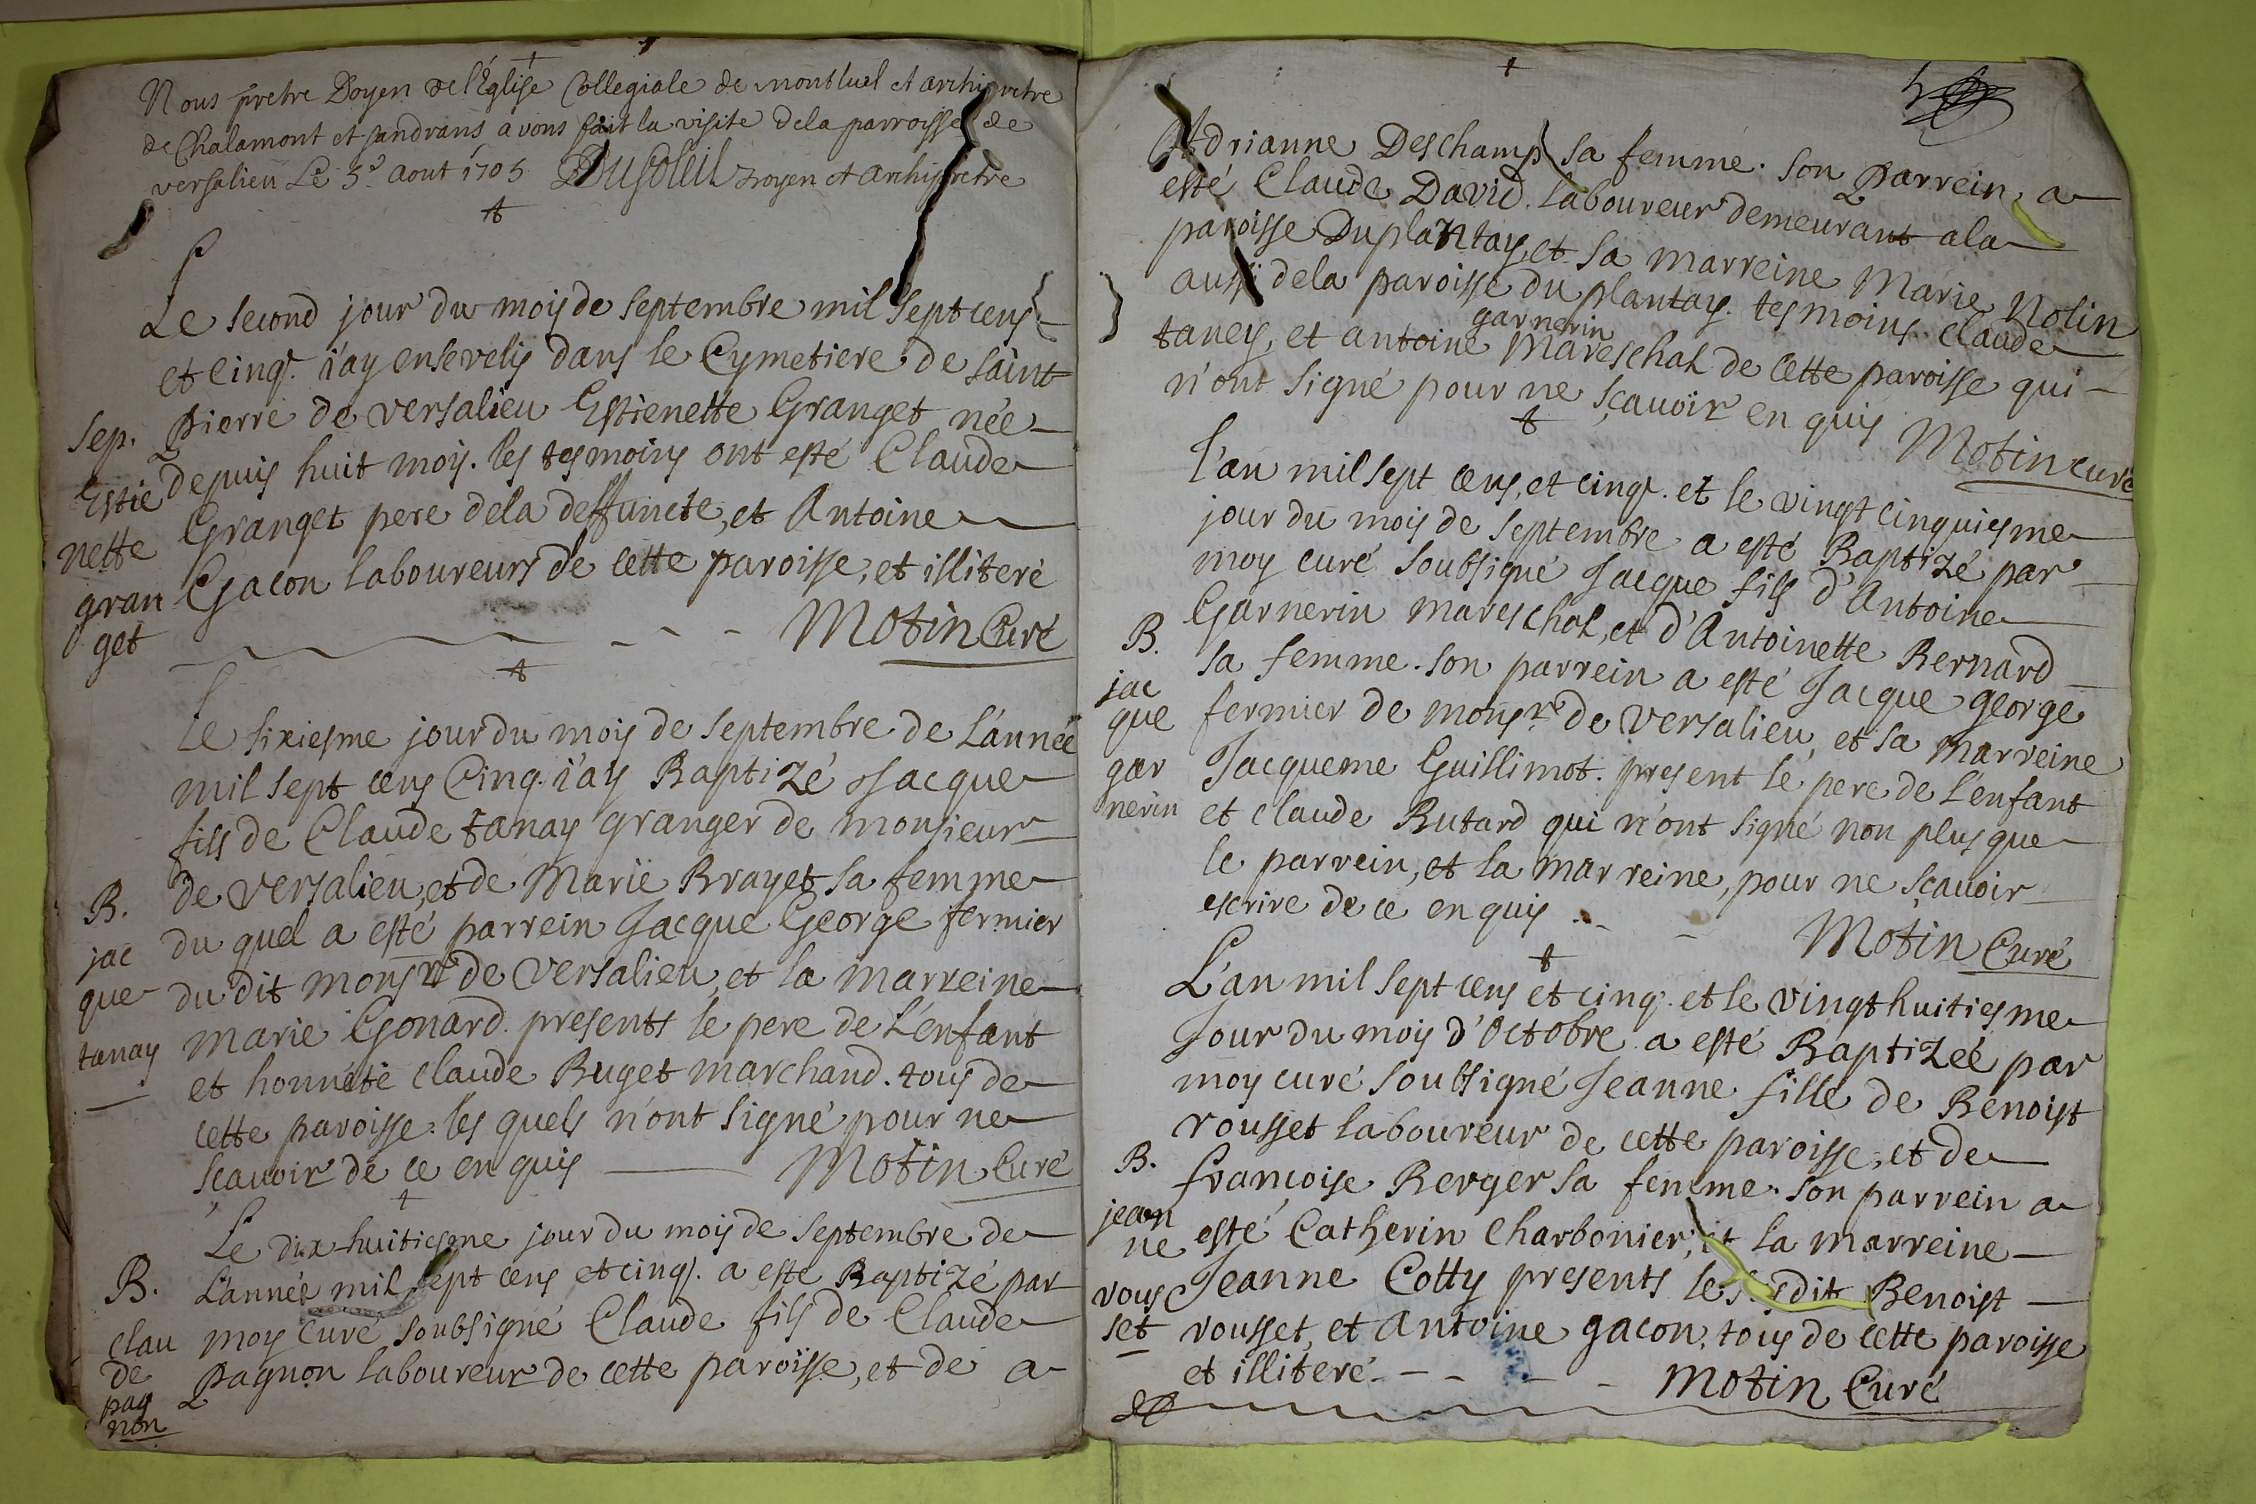 Nous prêtre Doyen de l'Église Collegiale de montluel et archiprêtre
de Chalamont et sandrans avons fait la visite dela parroisse de
versalieu Le 5e aout 1705 Dusoleil Doyen et archiprêtre
Le second jour du mois de septembre mil sept cens
et cinq. i'ay ensevelis dans le Cymetiere de saint
Pierre de versalieu Estienette Granget née
depuis huit mois. les tesmoins ont esté Claude
Granget pere dela deffuncte, et Antoine
Gacon laboureurs de cette paroisse, et illiteré
Motin Curé
sep.
Estie
nette
gran
get
Le sixiesme jour du mois de septembre de L'année
mil sept cens Cinq. i'ay Baptizé Jacque
fils de Claude tanay granger de monsieur
de versalieu, et de Marie Brayet sa femme
du quel a esté parrein Jacque George fermier
du dit monsr de versalieu, et la marreine
marie Gonard. presents le pere de L'enfant
et honnete claude Buget marchand. tous de
cette paroisse. les quels n'ont signé pour ne
sçavoir de ce enquis
Motin Curé
B.
jac
que
tanay
Le dix-huitiesme jour du mois de septembre de
L'année mil sept cens et cinq. a esté Baptizé par
moy Curé soubsigné Claude fils de Claude
Pagnon laboureur de cette paroisse, et de a
B.
clau
de
pag
non
Adrianne Deschamps sa femme. son Parrein a
esté Claude David. laboureur demeurant ala
paroisse Duplantay, et sa marreine Marie Nolin
aussi dela paroisse du plantay. tesmoins Claude
garnerin
taney, et antoine Mareschal de cette paroisse qui
n'ont signé pour ne sçavoir enquis
Motin curé
L'an mil sept cens, et cinq. et le vingt cinquiesme
jour du mois de septembre a esté Baptizé par
moy curé soubsigné Jacque fils d'Antoine
Garnerin mareschal, et d'Antoinette Bernard
sa femme. son parrein a esté Jacque george
fermier de monsr de versalieu, et sa marreine
Jacqueme Guillimot. present le pere de L'enfant
et claude Butard qui n'ont signé non plus que
le parrein, et la marreine, pour ne sçavoir
escrire de ce enquis
Motin Curé
B.
jac
que
gar
nerin
L'an mil sept cens et cinq. et le vingt huitiesme
Jour du mois d'Octobre a esté Baptizée par
moy curé soubsigné Jeanne fille de Benoist
rousset laboureur de cette paroisse, et de
francoise Berger sa femme. son parrein a
esté Catherin Charbonier, et la marreine
Jeanne Cotty presents le susdit Benoist
rousset, et Antoine gacon, tous de cette paroisse
et illiteré.
Motin Curé
B.
jean
ne
rous
set